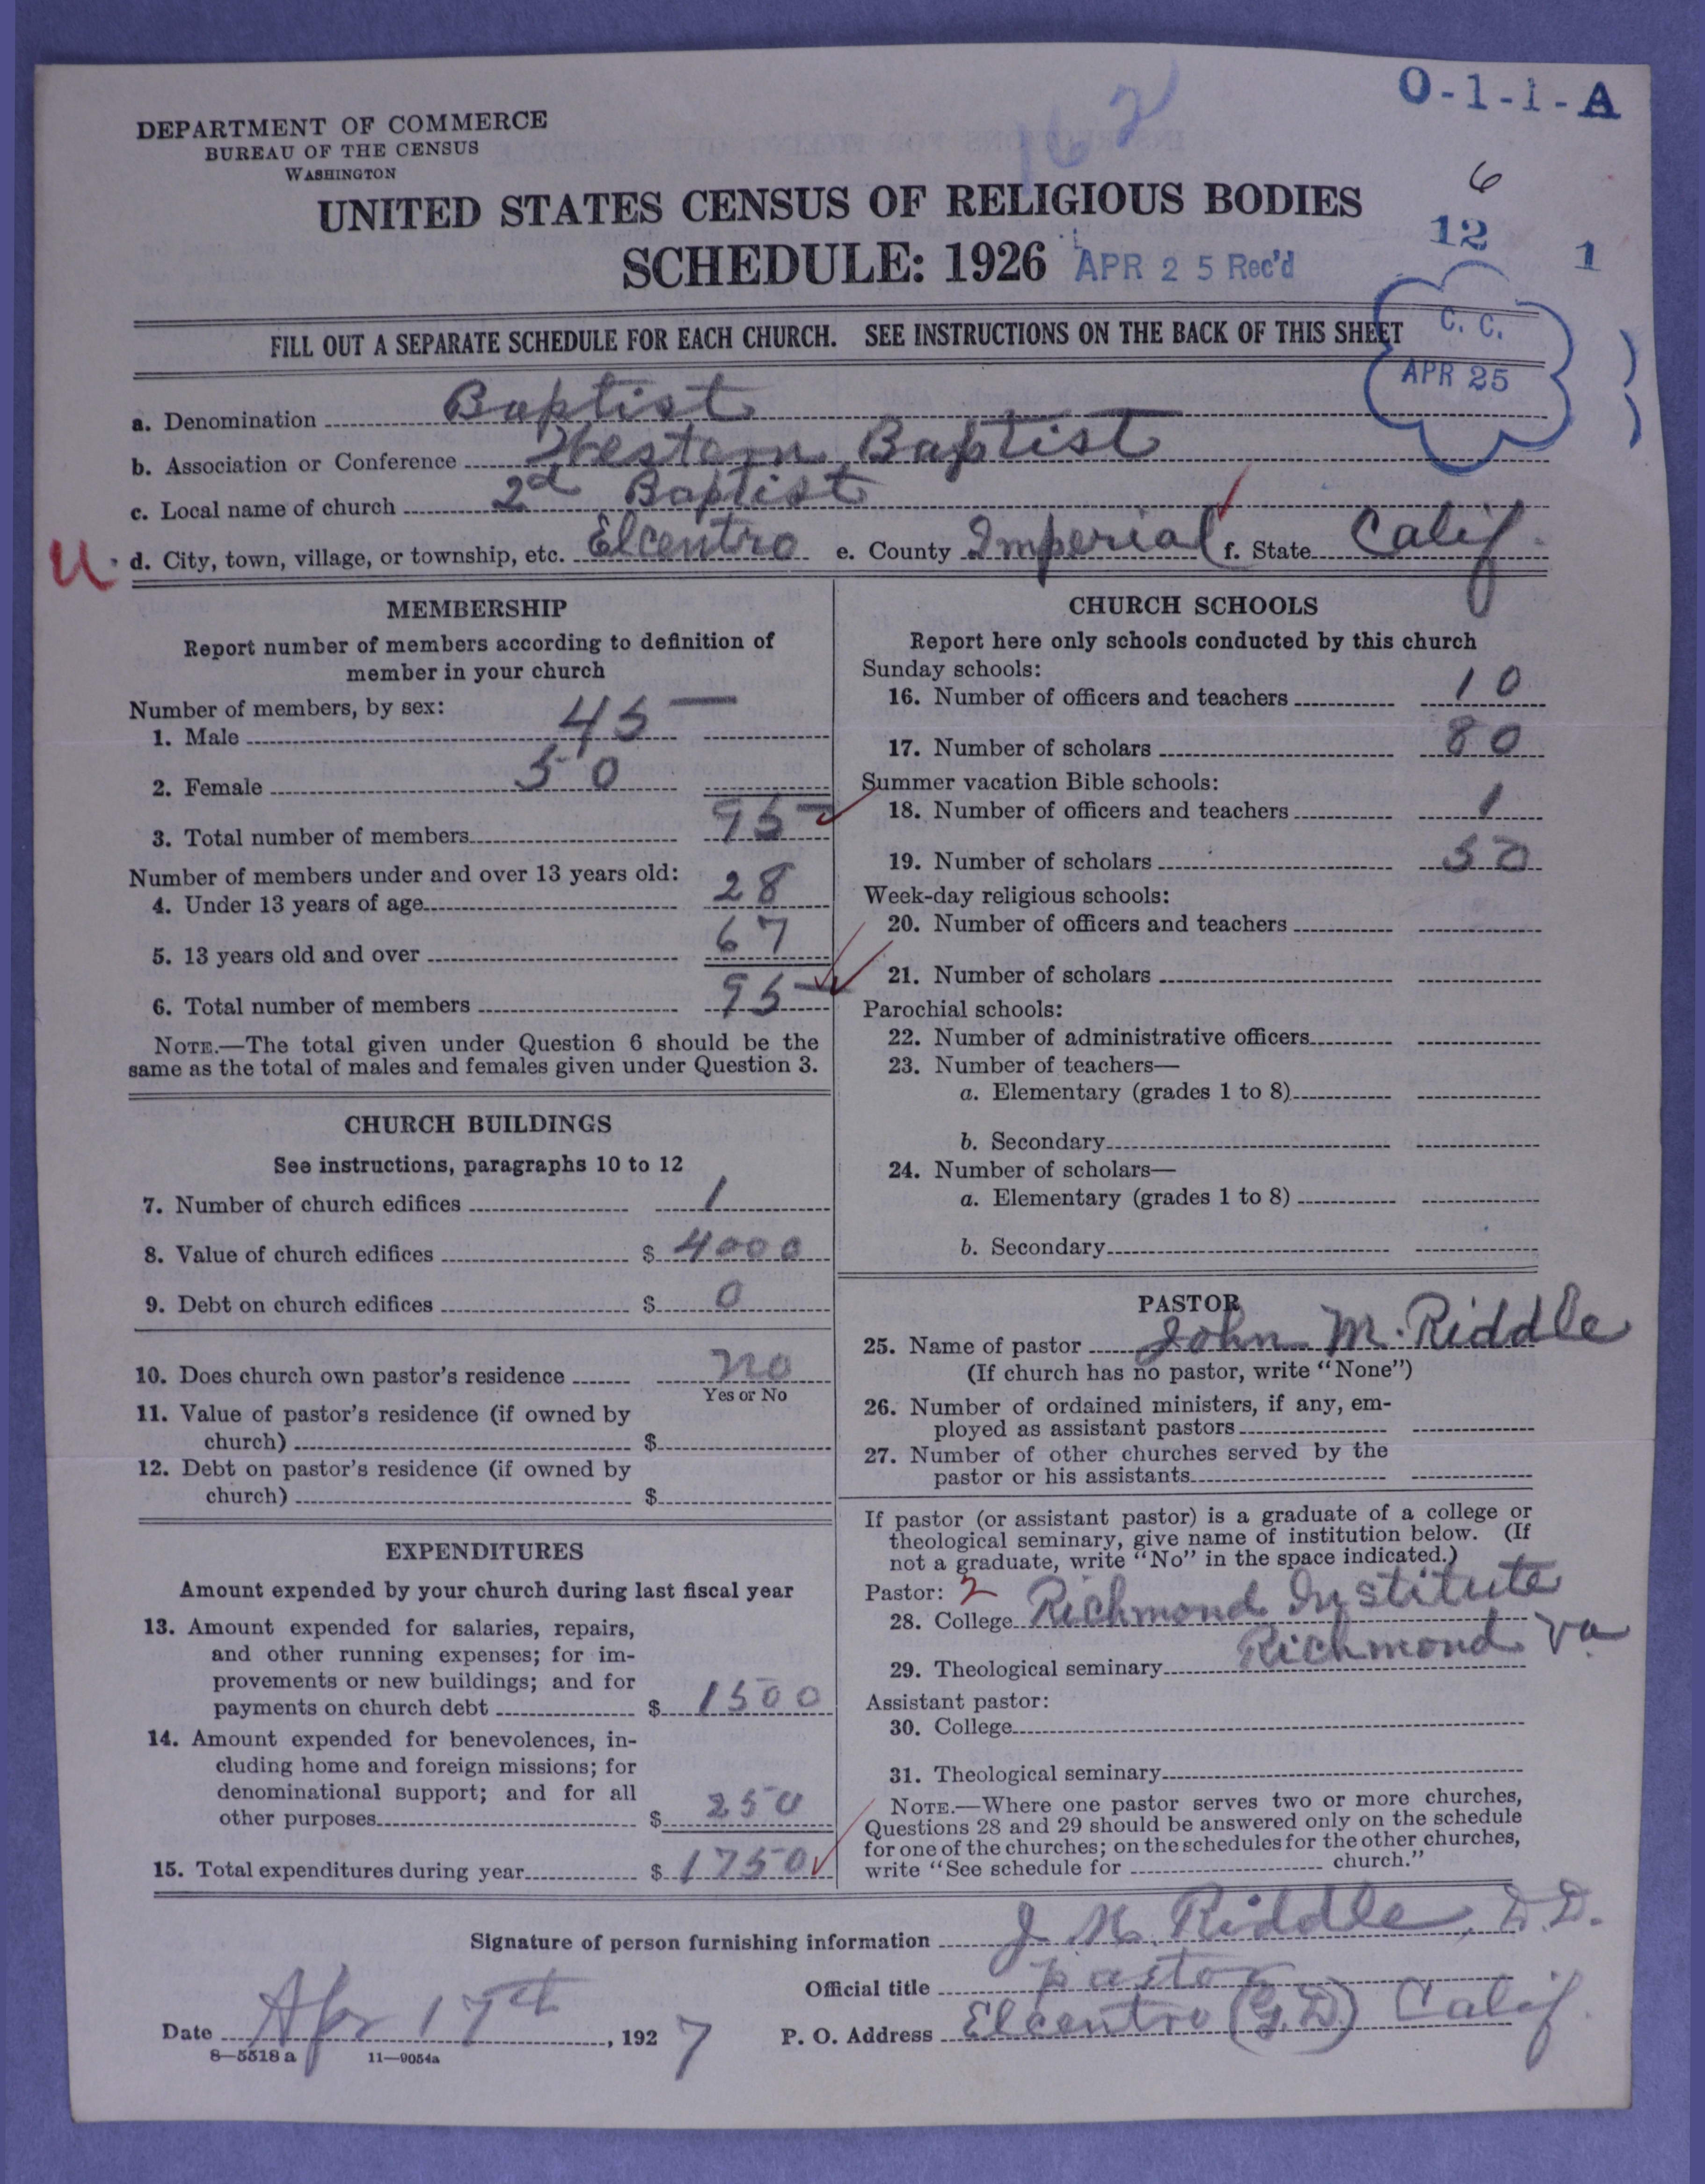 O-1-1-A
162
DEPARTMENT OF COMMERCE
BUREAU OF THE CENSUS
WASHINGTON
6
UNITED STATES CENSUS OF RELIGIOUS BODIES
12
1
SCHEDULE: 1926 APR 25 Rec'd
C. C.
APR 25
FILL OUT A SEPARATE SCHEDULE FOR EACH CHURCH. SEE INSTRUCTIONS ON THE BACK OF THIS SHEET
a. Denomination Baptist
b. Association or Conference Western Baptist
c. Local name of church 2d Baptist
U d. City, town, village, or township, etc. Elcentro e. County Imperial f. State Calif.
MEMBERSHIP
Report number of members according to definition of
member in your church
Number of members, by sex:
1. Male 45
2. Female 50
3. Total number of members 95
Number of members under and over 13 years old:
4. Under 13 years of age 28
5. 13 years old and over 67
6. Total number of members 95
NOTE.—The total given under Question 6 should be the
same as the total of males and females given under Question 3.
CHURCH BUILDINGS
See instructions, paragraphs 10 to 12
7. Number of church edifices 1
8. Value of church edifices $ 4000
9. Debt on church edifices $ 0
10. Does church own pastor's residence no
Yes or No
11. Value of pastor's residence (if owned by
church) $
12. Debt on pastor's residence (if owned by
church) $
EXPENDITURES
Amount expended by your church during last fiscal year
13. Amount expended for salaries, repairs,
and other running expenses; for im-
provements or new buildings; and for
payments on church debt $ 1500
14. Amount expended for benevolences, in-
cluding home and foreign missions; for
denominational support; and for all
other purposes $ 250
15. Total expenditures during year $ 1750
CHURCH SCHOOLS
Report here only schools conducted by this church
Sunday schools:
16. Number of officers and teachers 10
17. Number of scholars 80
Summer vacation Bible schools:
18. Number of officers and teachers 1
19. Number of scholars 50
Week-day religious schools:
20. Number of officers and teachers
21. Number of scholars
Parochial schools:
22. Number of administrative officers
23. Number of teachers—
a. Elementary (grades 1 to 8)
b. Secondary
24. Number of scholars—
a. Elementary (grades 1 to 8)
b. Secondary
PASTOR
25. Name of pastor John M. Riddle
(If church has no pastor, write "None")
26. Number of ordained ministers, if any, em-
ployed as assistant pastors
27. Number of other churches served by the
pastor or his assistants
If pastor (or assistant pastor) is a graduate of a college or
theological seminary, give name of institution below. (If
not a graduate, write "No" in the space indicated.)
Pastor: 2
28. College Richmond Institute
29. Theological seminary Richmond Va.
Assistant pastor:
30. College
31. Theological seminary
NOTE.—Where one pastor serves two or more churches,
Questions 28 and 29 should be answered only on the schedule
for one of the churches; on the schedules for the other churches,
write "See schedule for church."
Signature of person furnishing information J M. Riddle, D.D.
Official title pastor
Date Apr 17th, 1927 P. O. Address Elcentro (G.D.) Calif.
8—5518 a 11—9054a